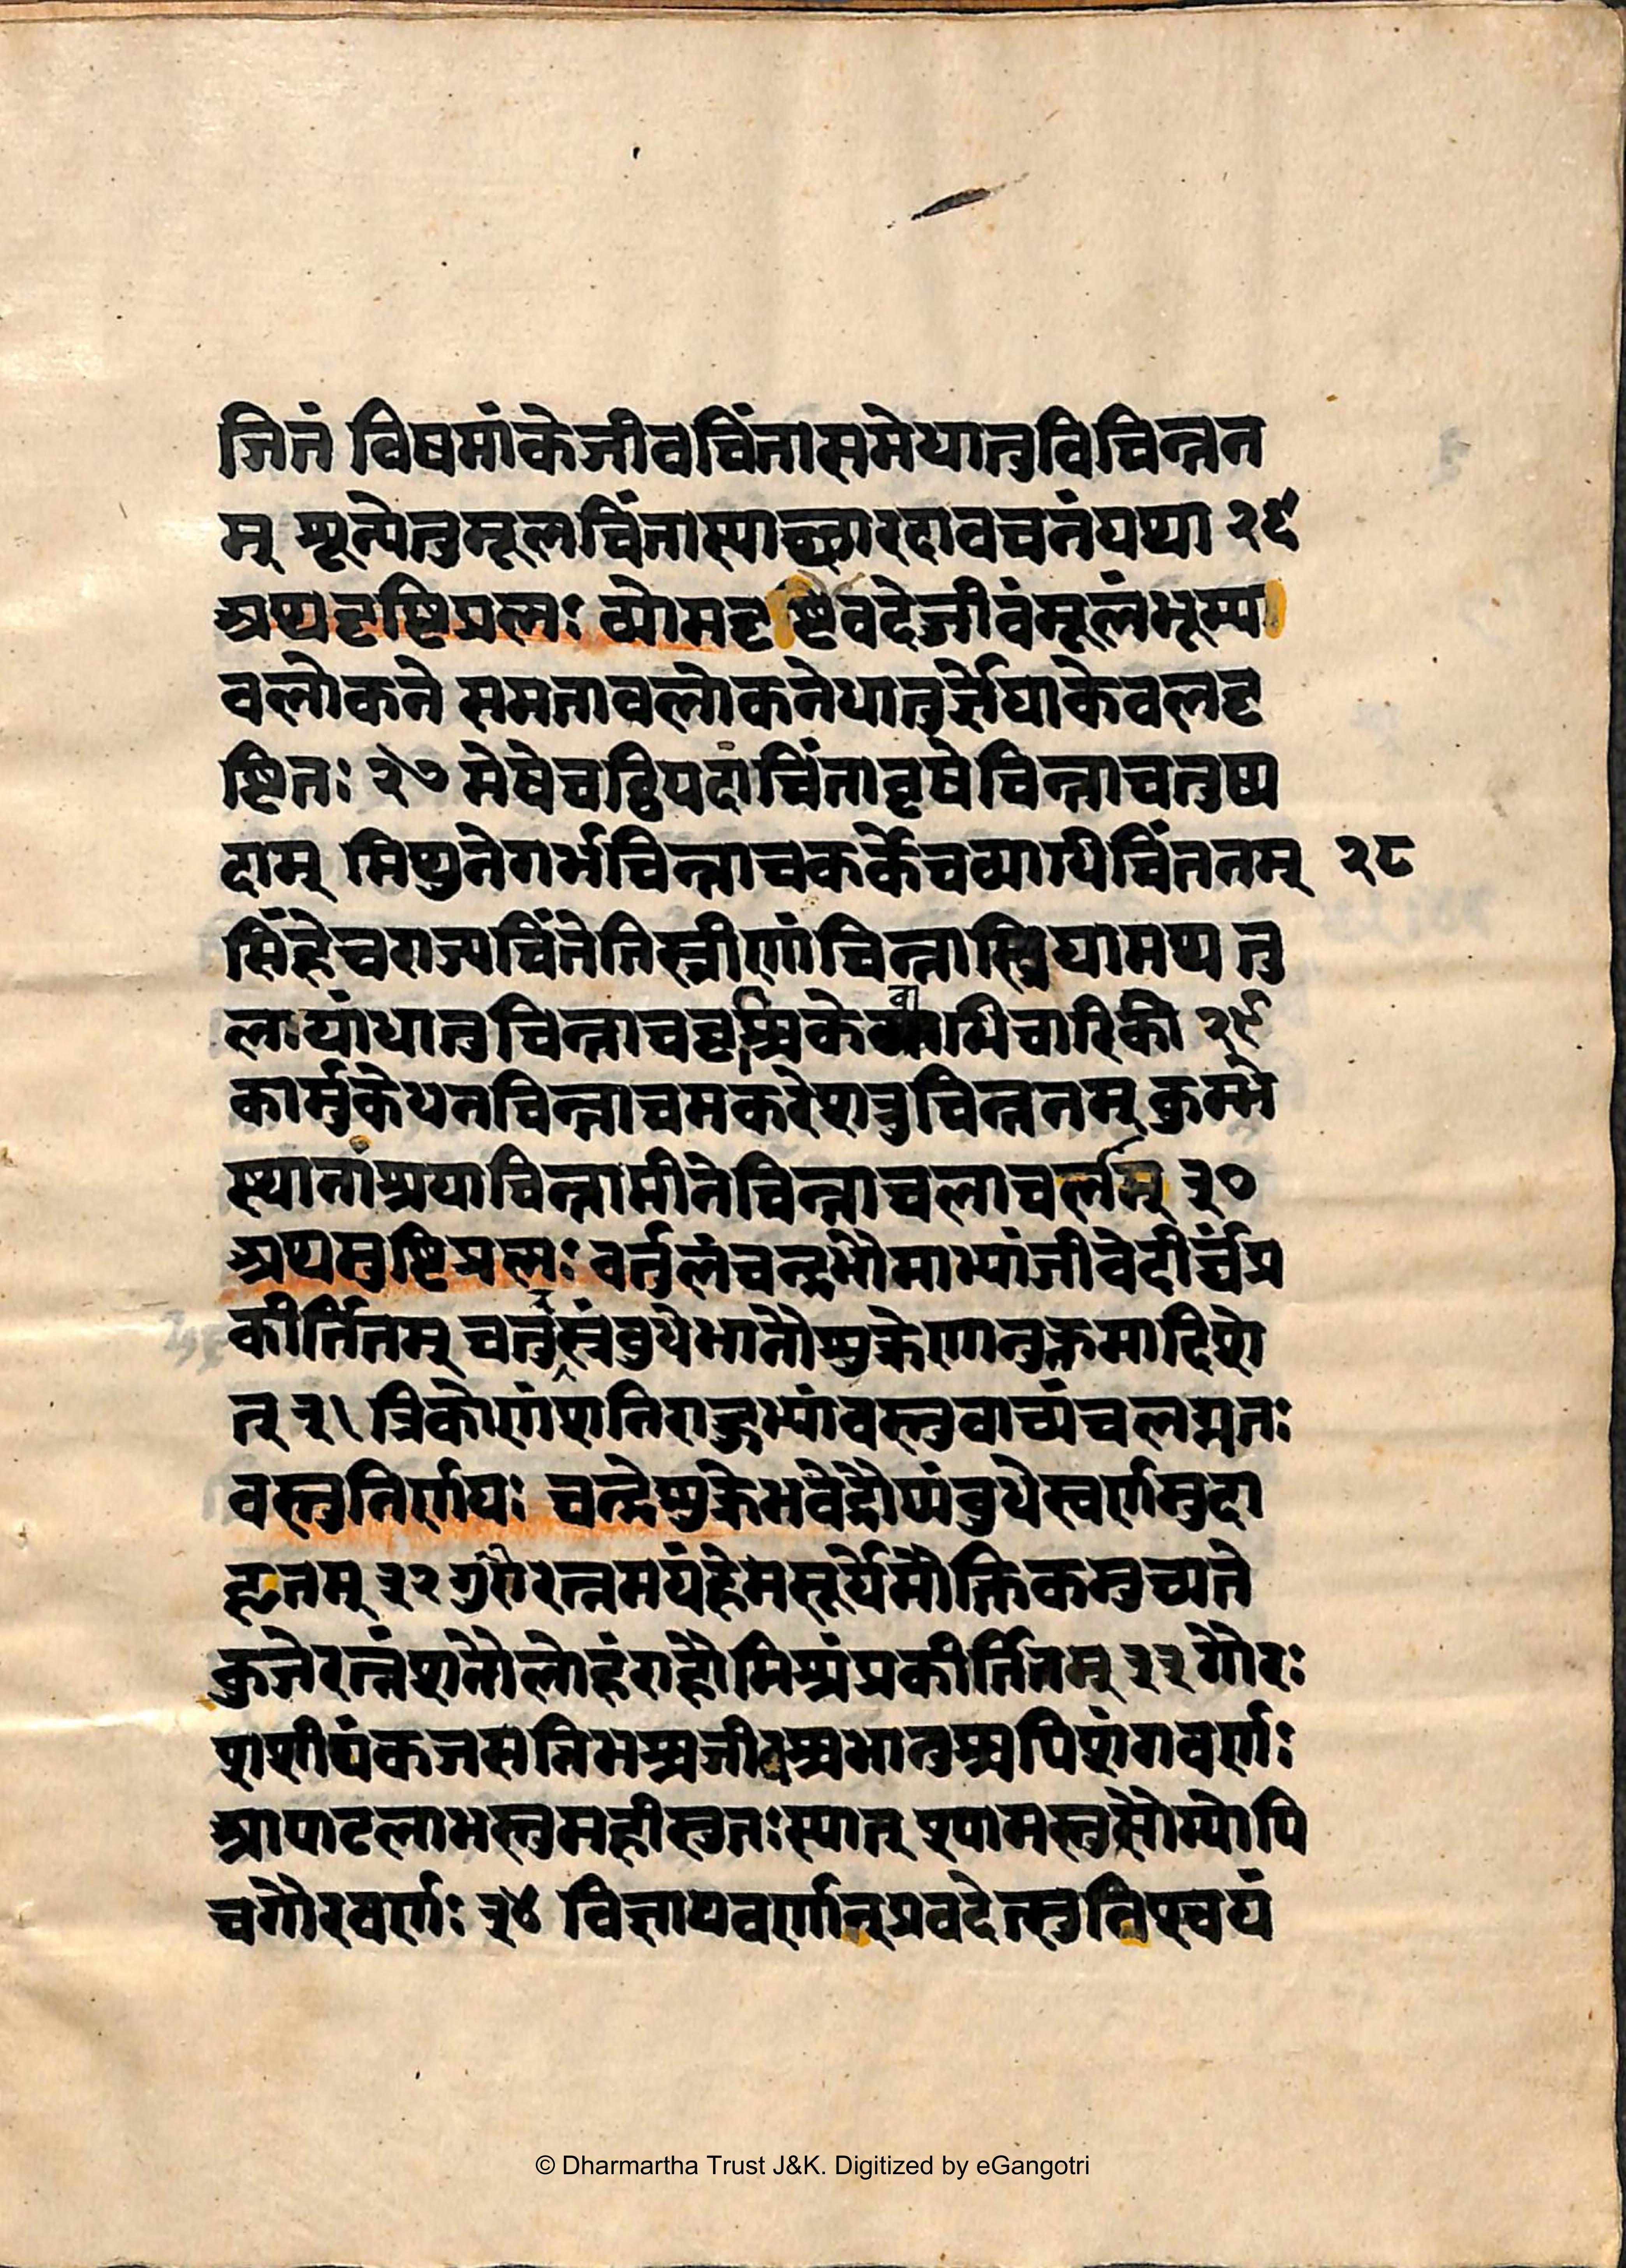 जितं विषमांकेजीवचिंतासमेधातुविचिन्तन
म् शून्येतुमूलचिंतास्याच्छारदावचनंयथा २६
अथदृष्टिप्रश्नः व्योमदृष्टिर्वदेज्जीवंमूलंभूम्या
वलोकने समतावलोकनेधातुर्ज्ञेयाकेवलदृ
ष्टितः २७ मेषेचद्विपदांचिंतावृषेचिन्ताचतुष्प
दाम् मिथुनेगर्भचिन्ताचकर्केचव्यापिचिंतनम् २८
सिंहेचराज्यचिंतेतिस्त्रीणांचिन्तास्त्रियामथ तु
लायांधातुचिन्ताचवृश्चिकेवाभिचारिकी २९
कार्मुकेधनचिन्ताचमकरेशत्रुचिन्तनम् कुम्भे
स्थानांश्रयाचिन्तामीनेचिन्ताचलाचलम् ३०
अथमुष्टिप्रश्नः वर्तुलंचन्द्रभौमाभ्यांजीवेदीर्घंप्र
कीर्त्तितम् चतुरस्रंबुधेभानौशुक्रेणानुक्तमादिशे
त् ३१ त्रिकोणंशनिराहुभ्यांवस्तुवाच्यंचलग्नतः
वस्तुनिर्णयः चन्द्रेशुक्रेभवेद्रौप्यंबुधेस्वर्णमुदा
हृतम् ३२ गुरौरत्नमयंहेमसूर्येमौक्तिकमुच्यते
कुजेरत्नंशनौलोहंराहौमिश्रंप्रकीर्त्तितम् ३३ गौरः
शशीपंकजसन्निभश्चजीवश्चभानुश्चपिशंगवर्णः
आपाटलाभस्तुमहीसुतःस्यात् श्यामस्तुसौम्योपि
चगौरवर्णः ३४ विज्ञायवर्णान्प्रवदेत्तुनिश्चयं
© Dharmartha Trust J&K. Digitized by eGangotri